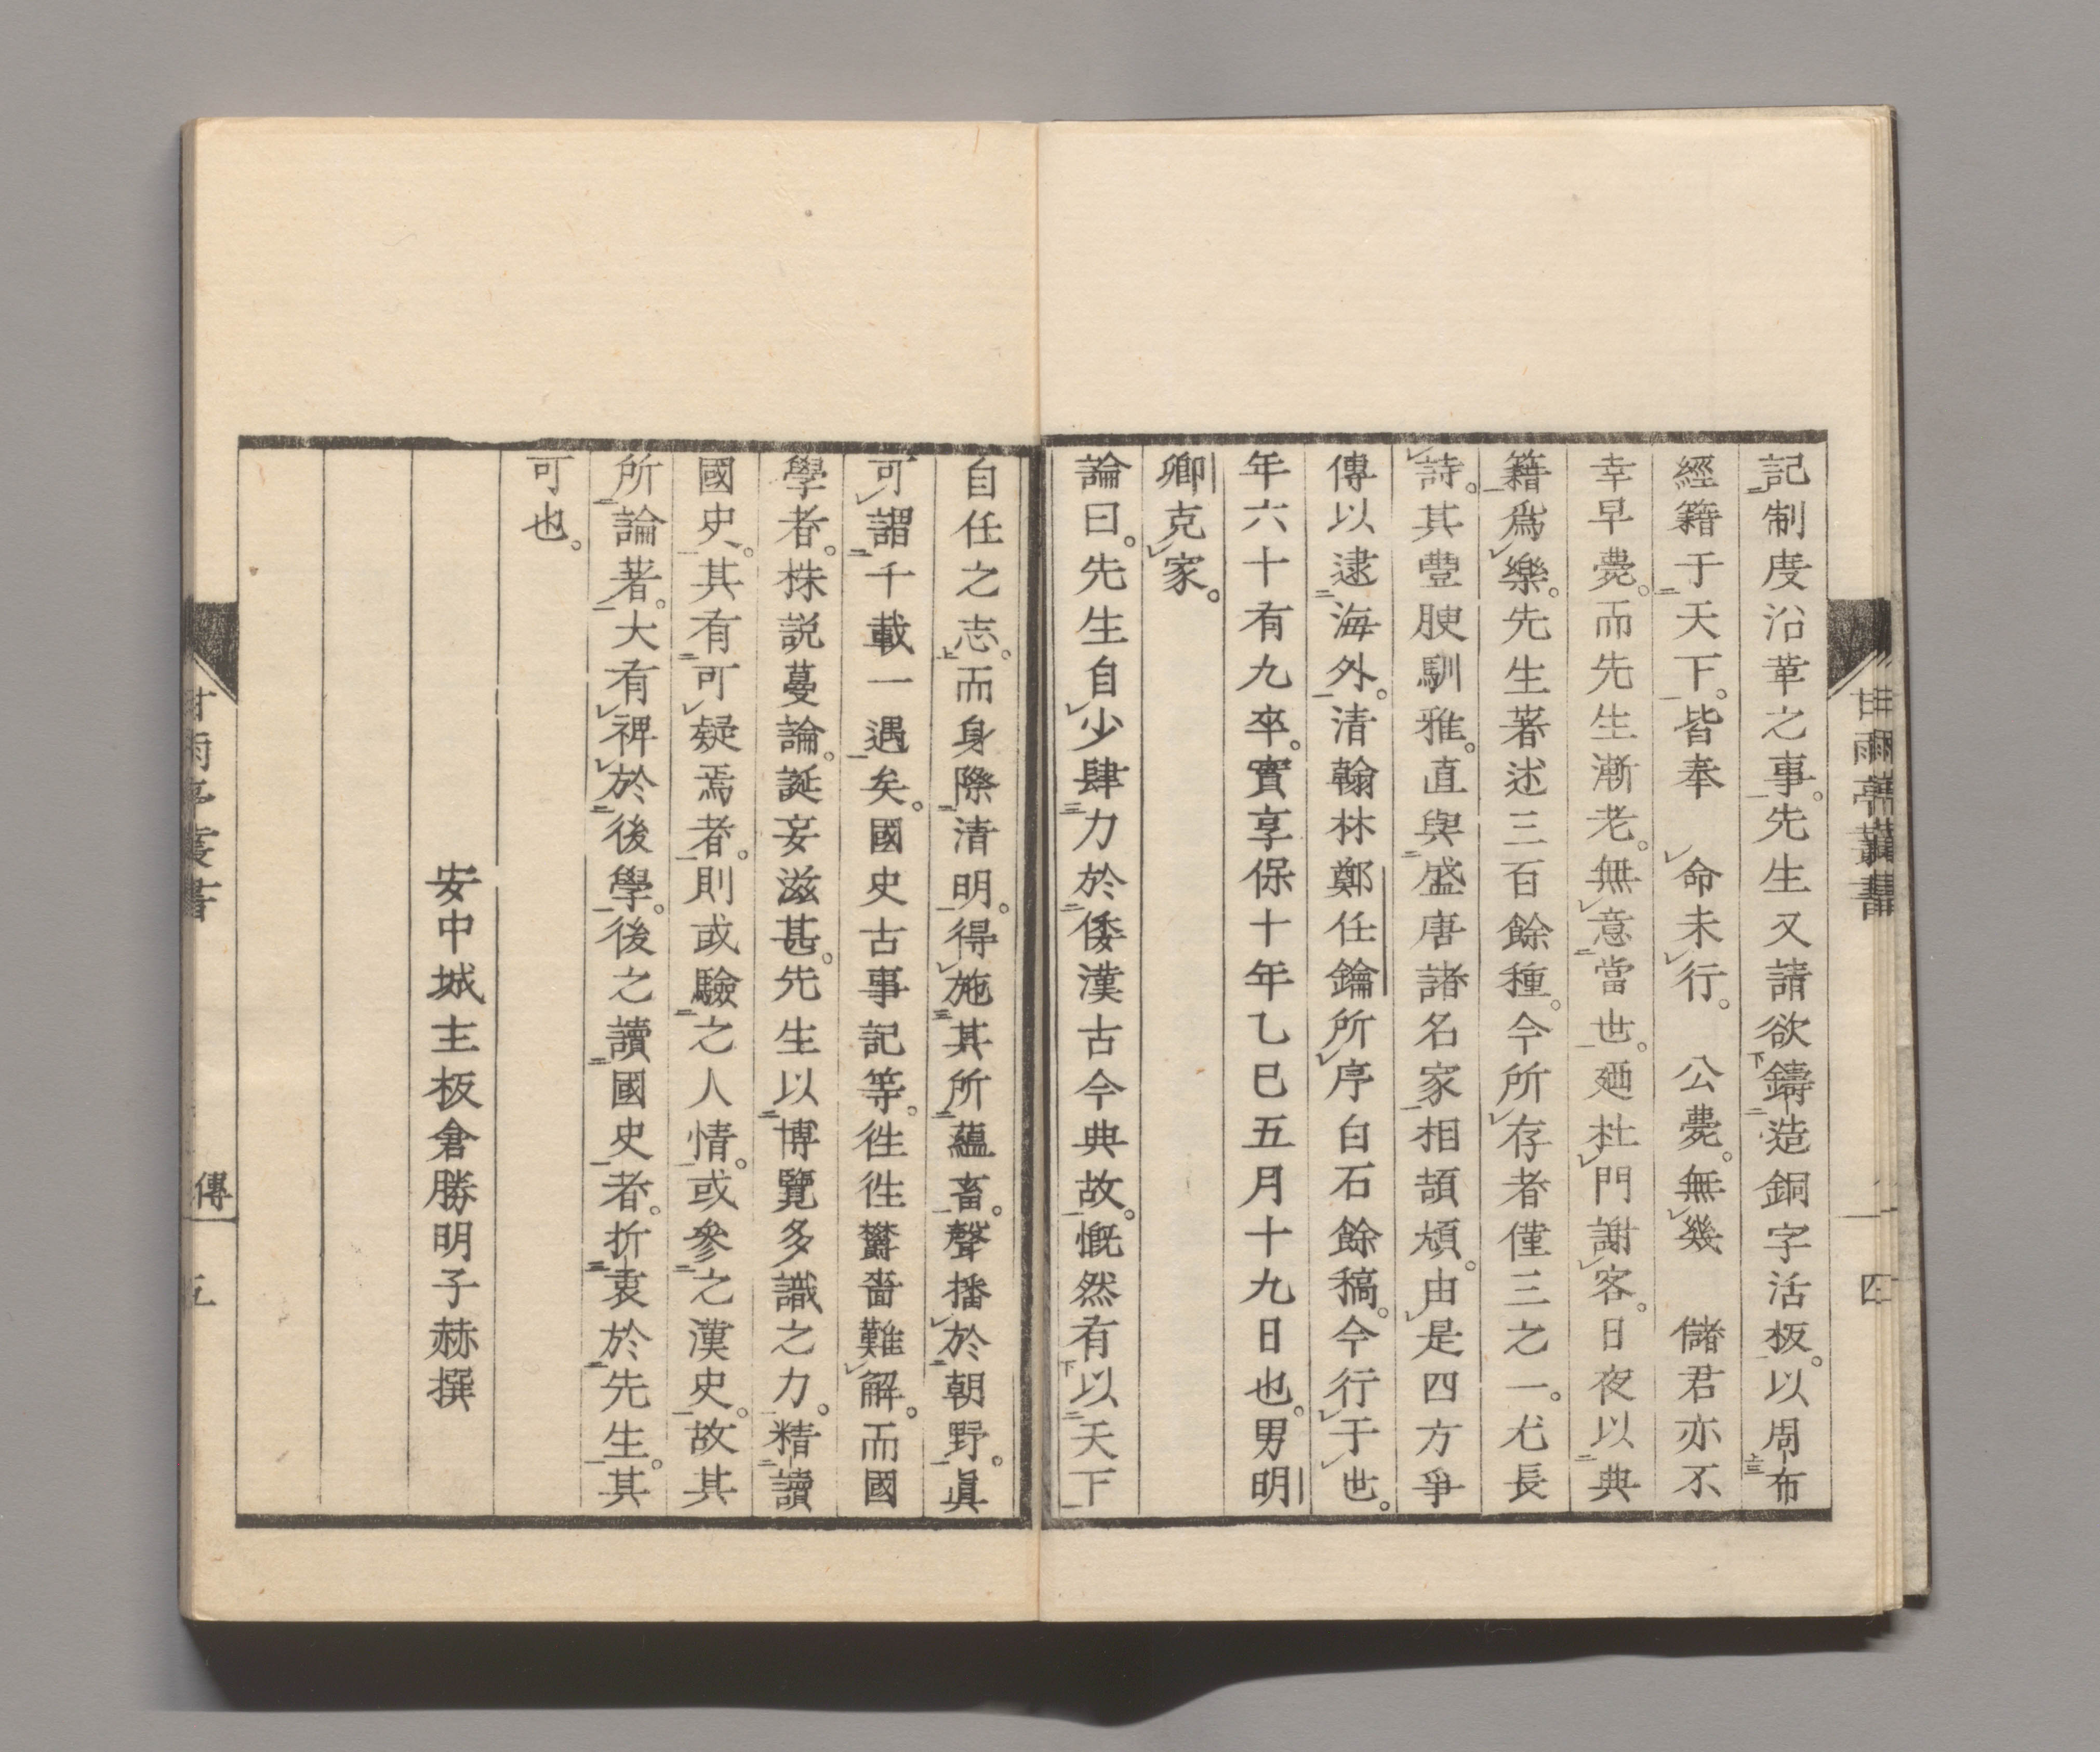 記制度沿革之事。先生又請欲鑄造銅字活板。以周布
經籍于天下。皆奉　命未行。　公薨。無幾　儲君亦不
幸早薨。而先生漸老。無意當世。廼杜門謝客。日夜以典
籍爲樂。先生著述三百餘種。今所存者僅三之一。尤長
詩。其豐腴馴雅。直與盛唐諸名家相頡頏。由是四方爭
傳以逮海外。清翰林鄭任鑰所序白石餘稿。今行于世。
年六十有九卒。實享保十年乙巳五月十九日也。男明
卿克家。
論曰。先生自少肆力於倭漢古今典故。慨然有以天下
自任之志。而身際清明。得施其所蘊畜。聲播於朝野。眞
可謂千載一遇矣。國史古事記等。往往欝嗇難解。而國
學者。株説蔓論。誕妄滋甚。先生以博覽多識之力。精讀
國史。其有可疑焉者。則或驗之人情。或參之漢史。故其
所論著。大有裨於後學。後之讀國史者。折衷於先生。其
可也。
安中城主板倉勝明子赫撰
甘雨亭叢書
四
甘雨亭叢書
傳
五